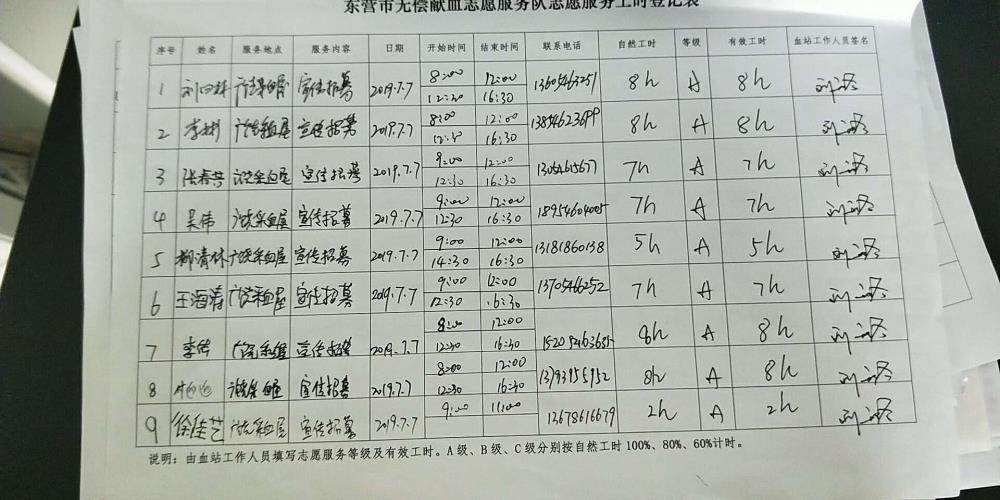 东营市无偿献血志愿服务队志愿服务工时登记表
序号 姓名 服务地点 服务内容 日期 开始时间 结束时间 联系电话 自然工时 等级 有效工时 血站工作人员签名
1 广饶采血屋 宣传招募 2019.7.7 8:00 12:00 13605463251 8h A 8h
12:30 16:30
2 李彬 广饶采血屋 宣传招募 2019.7.7 8:00 12:00 8h A 8h
12:30 16:30
3 张春芳 广饶采血屋 宣传招募 2019.7.7 9:00 12:00 7h A 7h
12:30 16:30
4 吴伟 广饶采血屋 宣传招募 2019.7.7 9:00 12:00 18954604005 7h A 7h
12:30 16:30
5 柳清林 广饶采血屋 宣传招募 2019.7.7 9:00 12:00 13181860138 5h A 5h
14:30 16:30
6 王海涛 广饶采血屋 宣传招募 2019.7.7 9:00 12:00 13705466252 7h A 7h
12:30 16:30
7 李伟 广饶采血屋 宣传招募 2019.7.7 8:00 12:00 8h A 8h
12:30 16:30
8 广饶采血屋 宣传招募 2019.7.7 8:00 12:00 13793955952 8h A 8h
12:30 16:30
9 徐佳艺 广饶采血屋 宣传招募 2019.7.7 9:00 11:00 13678616679 2h A 2h
说明：由血站工作人员填写志愿服务等级及有效工时。A级、B级、C级分别按自然工时100%、80%、60%计时。